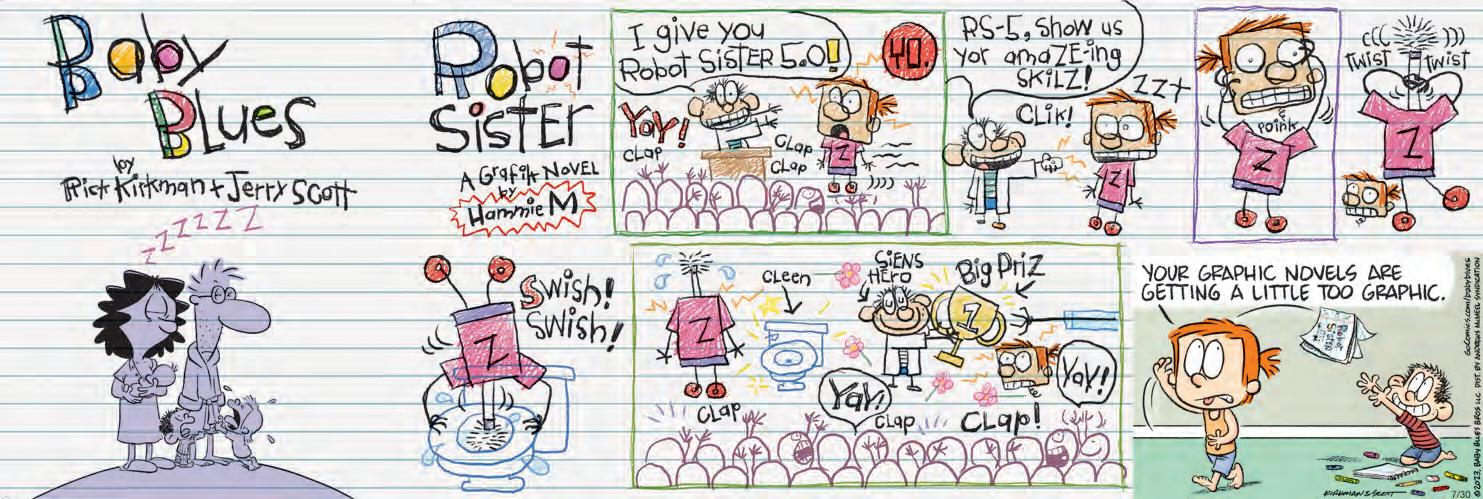 Baby
Blues
by
Rick Kirkman + Jerry Scott
ZZZZZZZ
Robot
Sister
A Grafik Novel
by
Hammie M
I give you
Robot Sister 5.0!
YO.
YAY!
CLAP
CLAP
CLAP
Z
))))
RS-5, Show us
yor amaZE-ing
SKILZ!
CLIK!
ZZ+
Z
POINK
Z
((( )))
TWIST TWIST
Z
Swish!
Swish!
Z
Z
CLEEN
SIENS
HERO
Big Priz
1
YAY!
YAY!
CLAP
CLAP
CLAP!
YOUR GRAPHIC NOVELS ARE
GETTING A LITTLE TOO GRAPHIC.
Robot
Sister
KIRKMAN & SCOTT
7/30
©2023, BABY BLUES BROS. LLC DIST. BY ANDREWS MCMEEL SYNDICATION
GoComics.com/babyblues